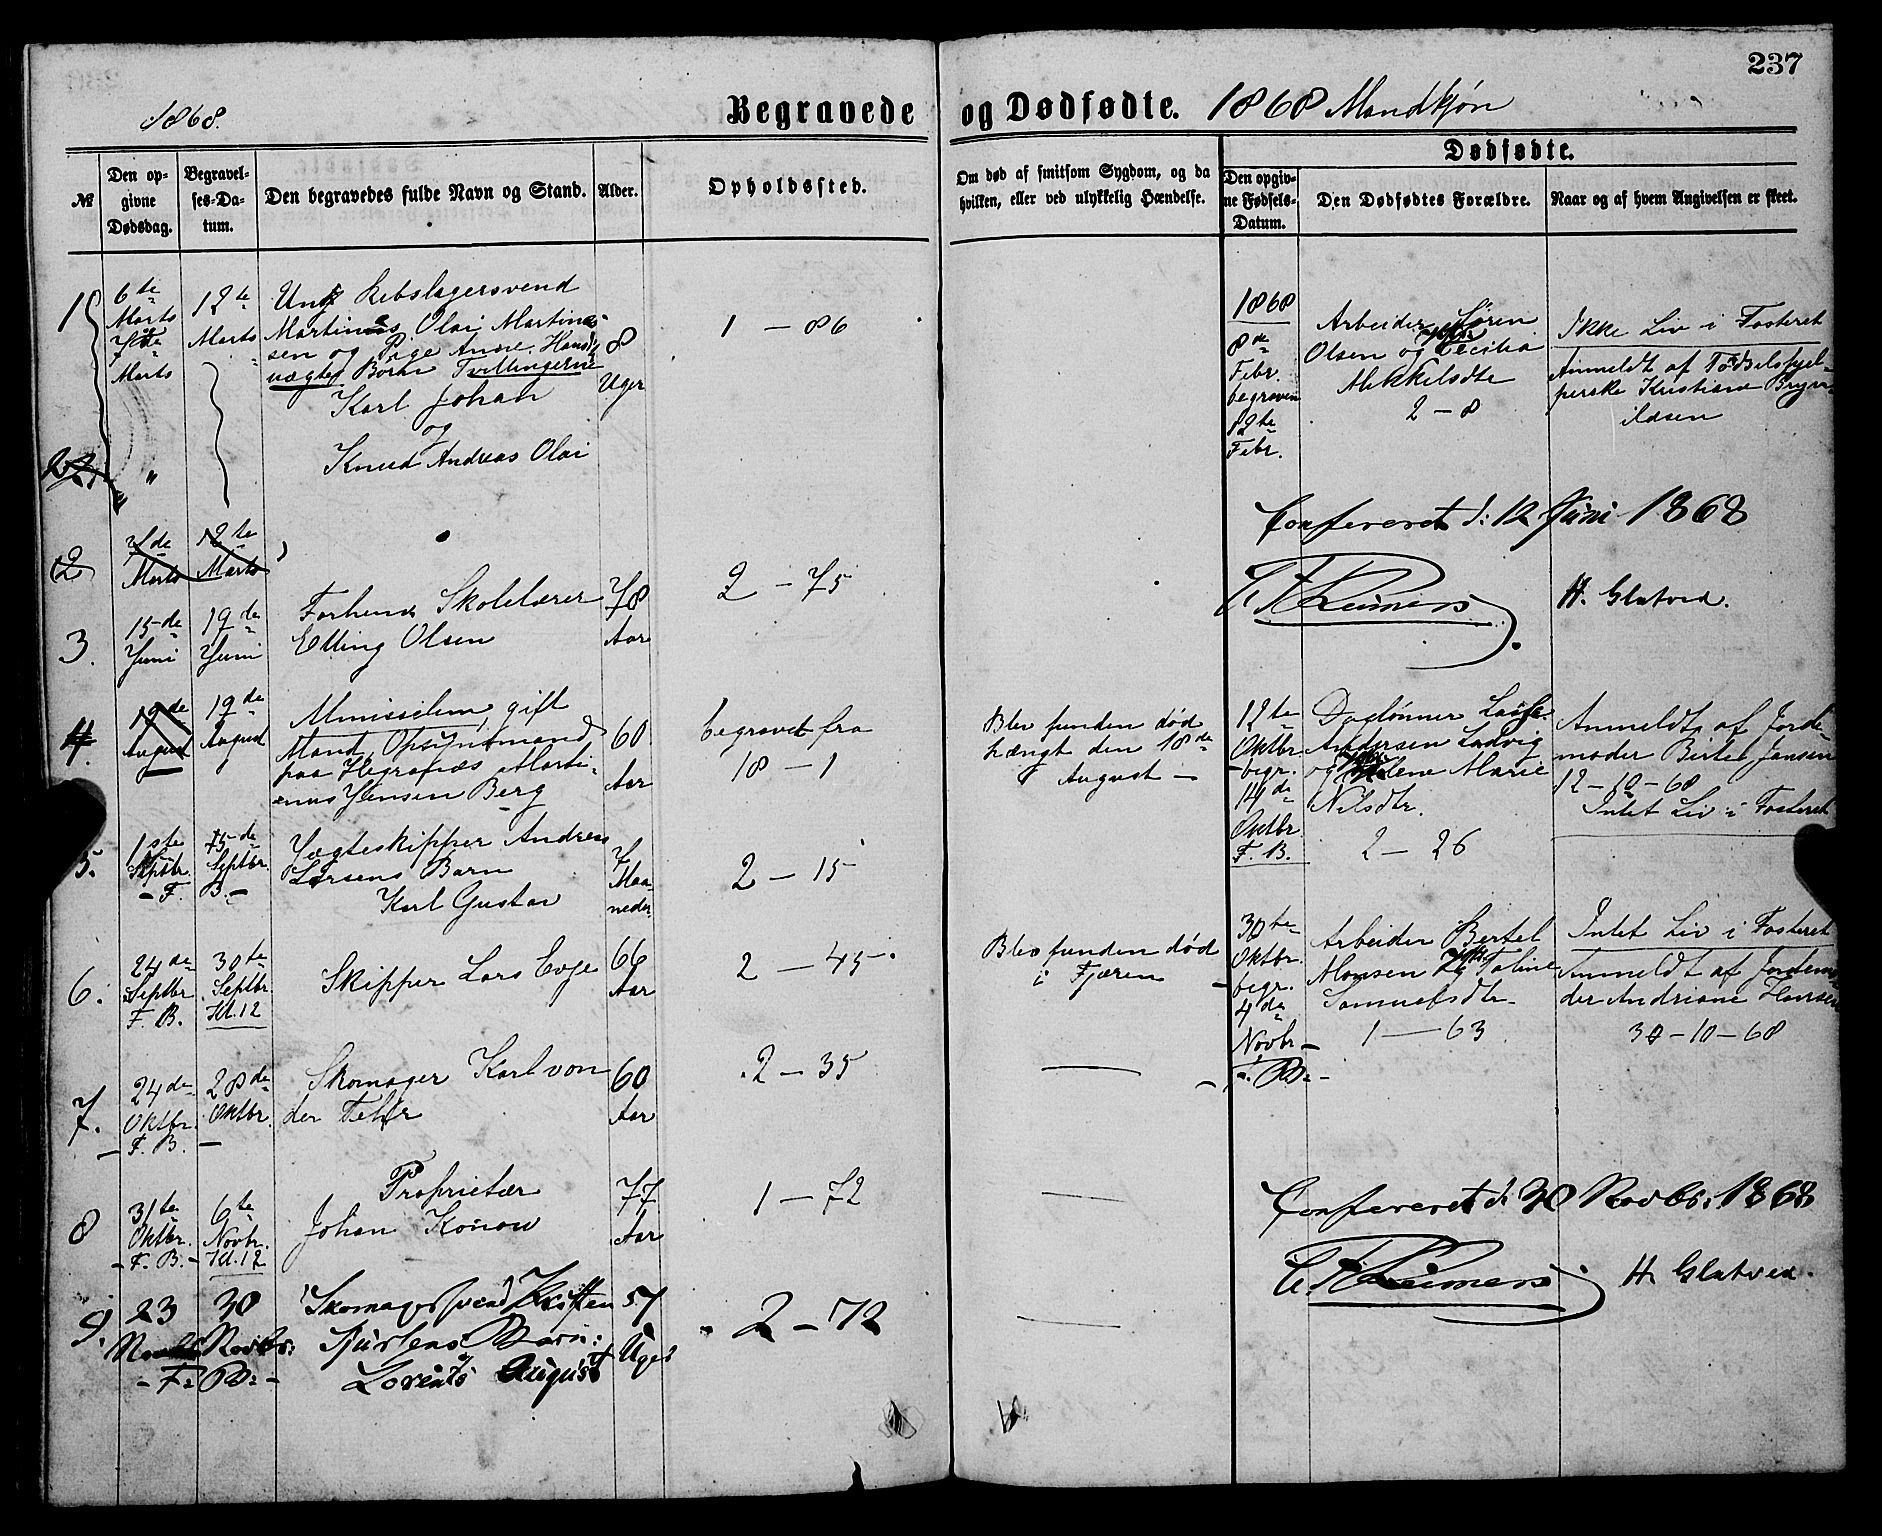 237
1868.
Begravede og Dødfødte. 1868 Mandkjøn
№
Den opgivne Dødsdag.
Begravelses-Datum.
Den begravedes fulde Navn og Stand.
Alder.
Opholdssted.
Om død af smitsom Sygdom, og da
hvilken, eller ved ulykkelig Hændelse.
Dødfødte.
Den opgivne Fødsels-Datum.
Den Dødfødtes Forældre.
Naar og af hvem Angivelsen er skeet.
1
6te
Marts
7de
Marts
12te
Marts
Ung Rebslagersvend
Martinus Olai Martin-
sen og Pige Anne
uægte Børn Tvillingerne
Karl Johan
og
Knud Andreas Olai
8
Uger
1 – 86
2
"
2
7de
Marts
12te
Marts
3.
15de
Juni
19de
Juni
Forhenv. Skolelærer
Elling Olsen
78
Aar
2 – 75
4.
19de
August
19de
August
Almisselem, gift
Mand, Opsynsmand
paa Hegrenæs Marti-
nus Jensen Berg
60
Aar
begravet fra
18 – 1
Blev funden død
hængt den 18de
August –
5.
1ste
Septbr
– F.
5de
Septbr.
B. –
Jægteskipper Andreas
Larsens Barn
Karl Gustav
7
Maa-
neder
2 – 15
6.
24de
Septbr
F. B.
30te
Septbr
Kl. 12
Skipper Lars Evje
66
Aar
2 – 45
Blev funden død
i Fjæren
7.
24de
Oktbr.
– F. B. –
28de
Oktbr.
Skomager Karl von
der Fehr
60
Aar
2 – 35
8
31te
Oktbr.
– F. B. –
6te
Novbr.
Kl. 12
Proprietær
Johan Konow
77
Aar
1 – 72
9.
23
– F.
30
Novbr:
B: –
Skomagersvend
Barn:
Lorents August
57
Uger
2 – 72
1868
8de
Febr.
begraven
12te
Febr.
Arbeider Søren
Olsen og Cecilia
Mikkelsdtr
2 – 8
Ikke Liv i Fosteret
Anmeldt af Fødselshjel-
perske Kristiane Bryn-
ildsen
Confereret d: 12 Juni 1868
H. Glatved.
12te
Oktbr.
– begr.
14de
Oktbr.
F. B.
Daglønner Lasse
Andersen Ladvig
og Helene Marie
Nilsdtr.
2 – 26
Anmeldt af Jorde-
moder Berte Jansen
12 – 10 – 68
Intet Liv i Fosteret
30te
Oktbr.
begr.
4de
Novbr –
F. B: –
Arbeider Bertel
Monsen og Taline
Samuelsdtr –
1 – 63
Intet Liv i Fosteret
Anmeldt af Jordemo-
der Andriane Hansen
30 – 10 – 68
Confereret d. 30 Novbr: 1868
H. Glatved.